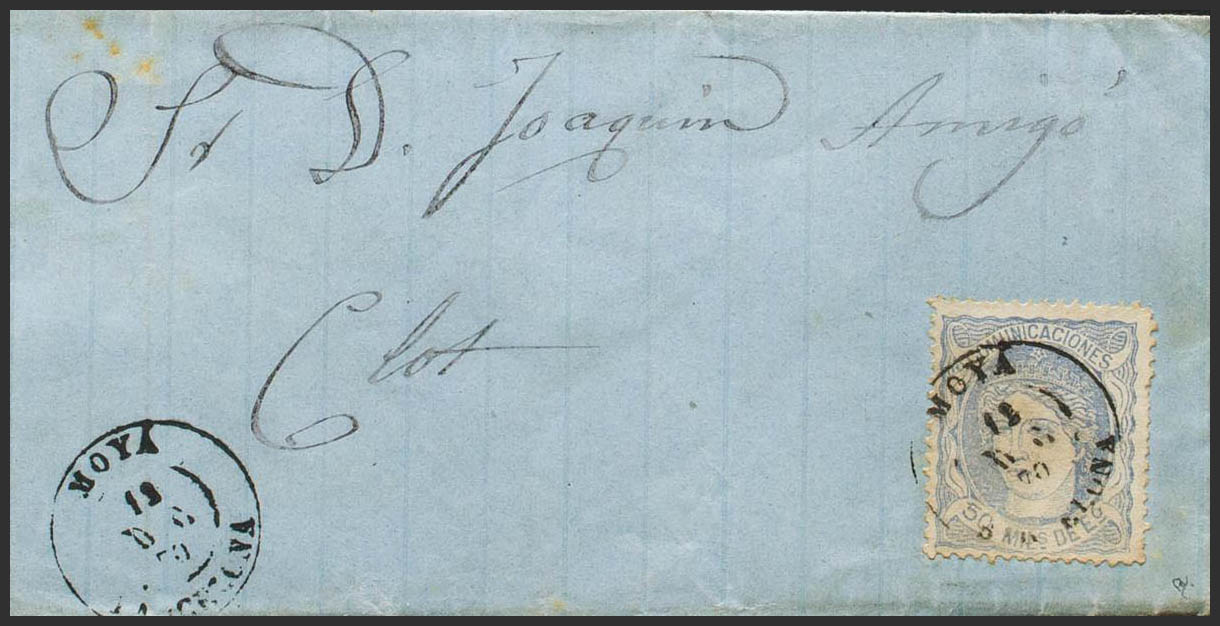 Sr D. Joaquin Amigó
Clot
COMUNICACIONES
MOYA
12
ELONA
50 MILS DE
MOYA
12
ONA